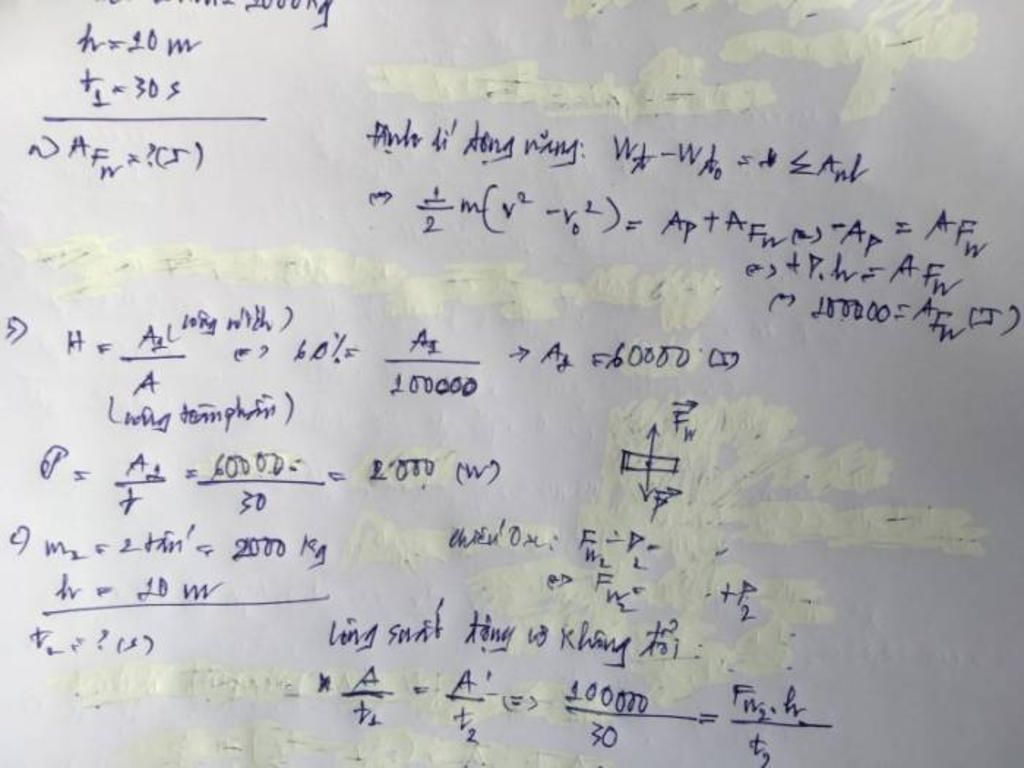 = 1000 kg
h = 10 m
t₁ = 30 s
a) A_Fn = ? (J)
Định lí động năng: Wđ - Wđ₀ = ΣAnl
⇔ 1/2 m(v² - v₀²) = Ap + A_Fn ⇔ -Ap = A_Fn
⇔ +P.h = A_Fn
⇔ 100000 = A_Fn (J)
H = A₁ (công có ích) / A (công toàn phần) ⇔ 60% = A₁ / 100000 → A₁ = 60000 (J)
𝒫 = A₁ / t = 60000 / 30 = 2000 (W)
F⃗n
P⃗
c) m₂ = 2 tấn = 2000 kg
h = 10 m
t₂ = ? (s)
chiếu Ox: Fn₂ - P₂ =
⇔ Fn₂ = + P₂
Công suất động cơ không đổi:
A / t₁ = A' / t₂ ⇔ 100000 / 30 = Fn₂.h / t₂